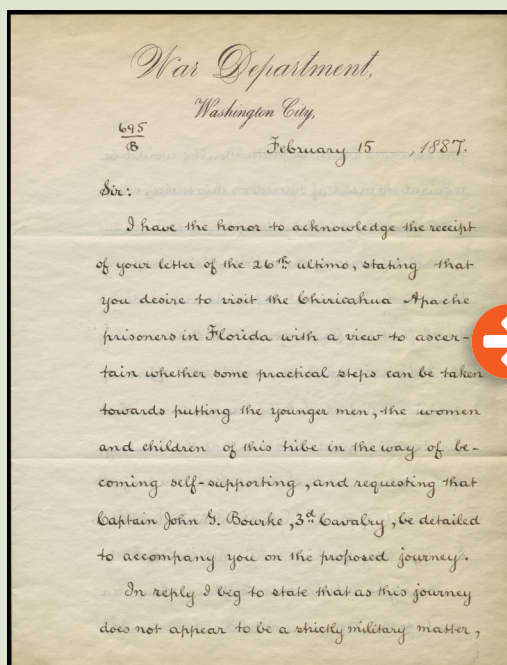 War Department,
Washington City,
695
B
February 15, 1887.
Sir:
I have the honor to acknowledge the receipt
of your letter of the 26th ultimo, stating that
you desire to visit the Chiricahua Apache
prisoners in Florida with a view to ascer-
tain whether some practical steps can be taken
towards putting the younger men, the women
and children of this tribe in the way of be-
coming self-supporting, and requesting that
Captain John G. Bourke, 3d Cavalry, be detailed
to accompany you on the proposed journey.
In reply I beg to state that as this journey
does not appear to be a strictly military matter,